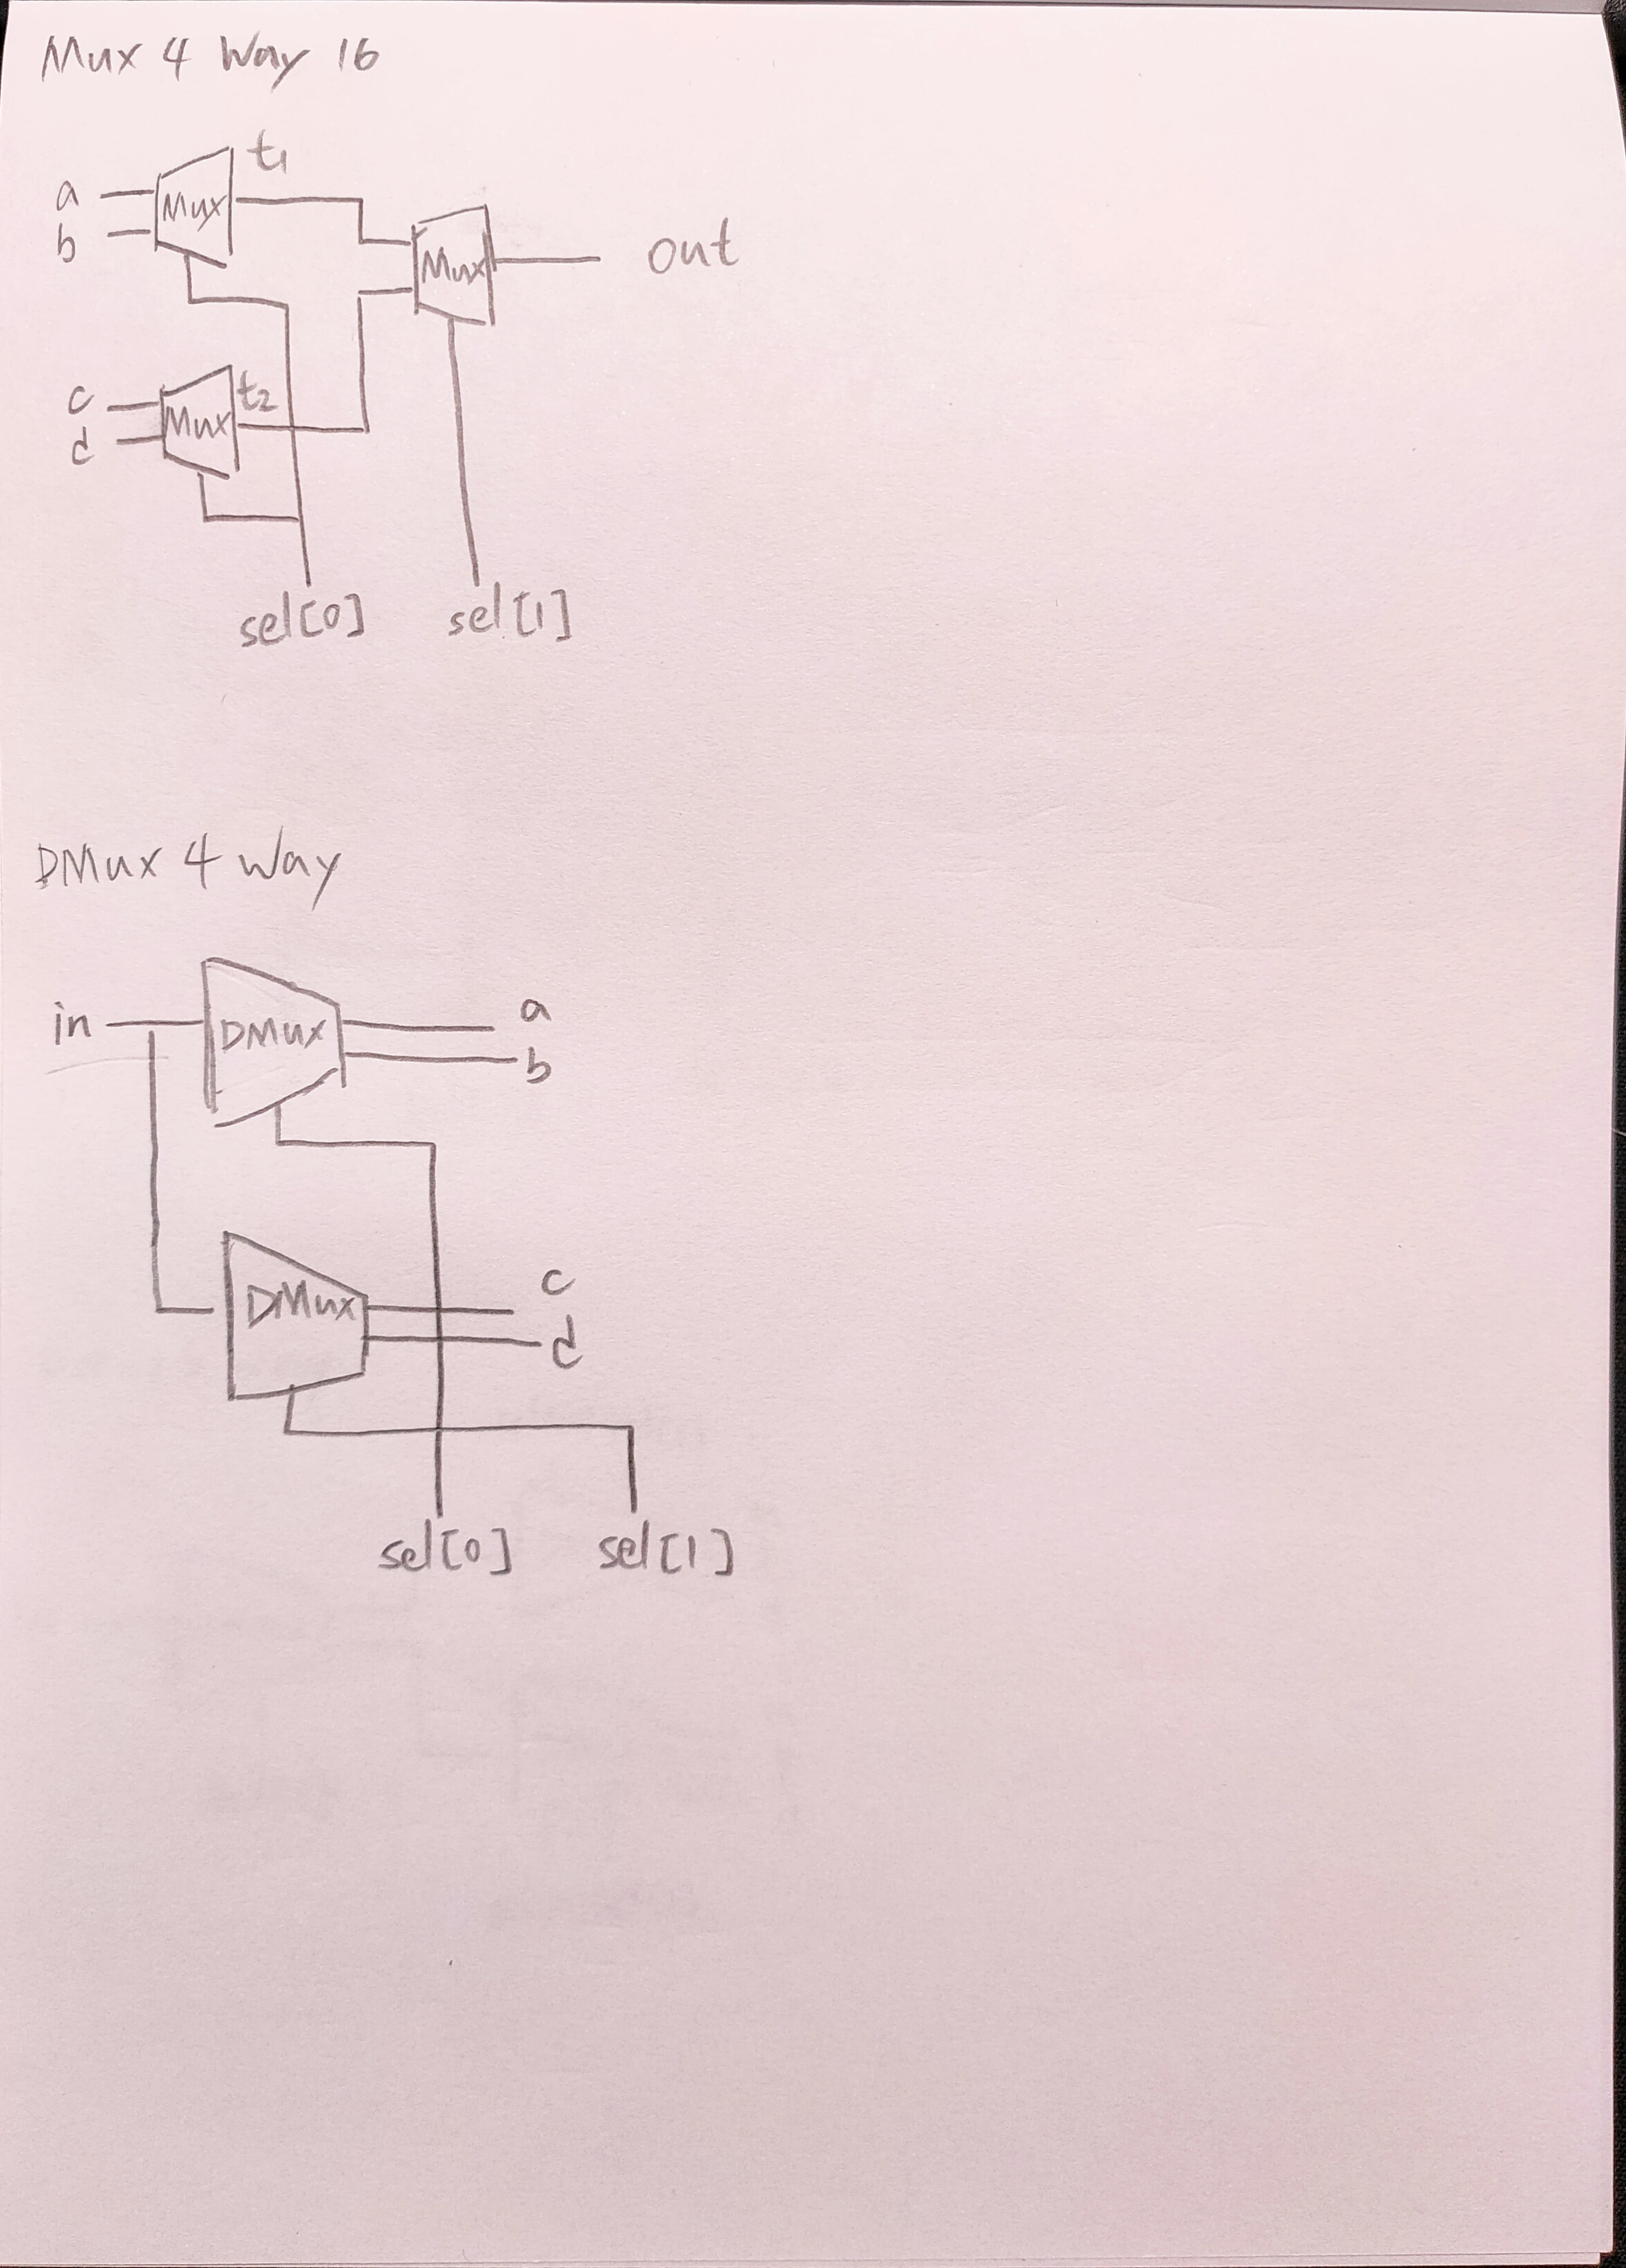 Mux 4 Way 16
t1
a
Mux
b
Mux
out
c
t2
Mux
d
sel[0]
sel[1]
DMux 4 Way
in
DMux
a
b
c
DMux
d
sel[0]
sel[1]